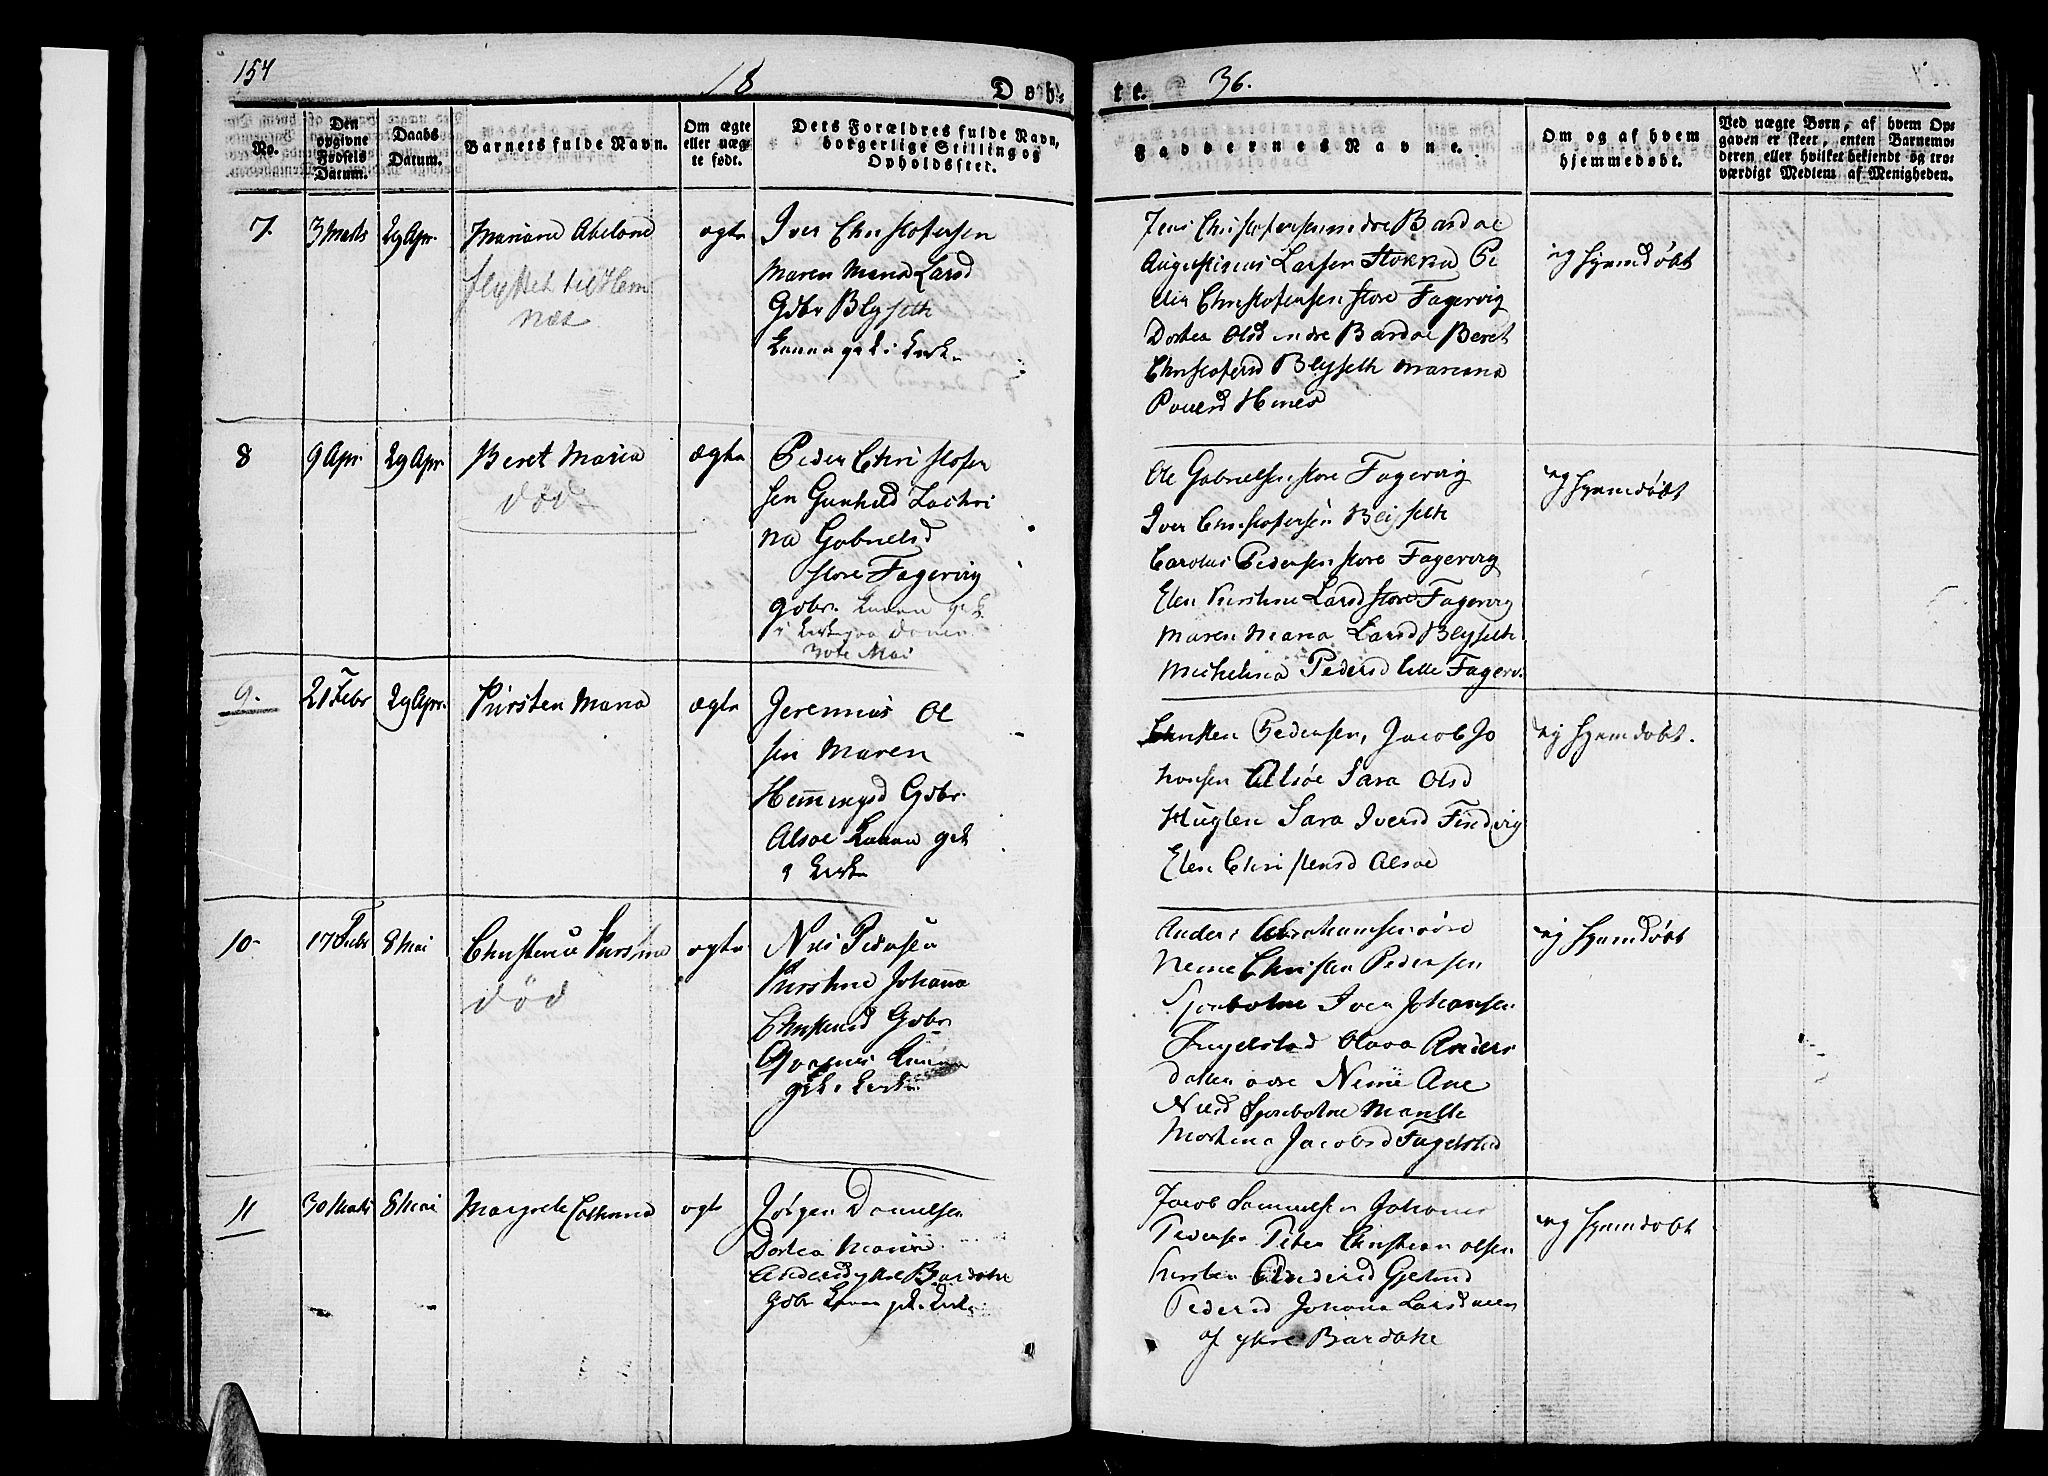 154
18
Døb-
te.
36.
No.
Den
opgivne
Fødsels
Datum.
Daabs
Datum.
Barnets fulde Navn.
Om ægte
eller uæg-
te født.
Dets Forældres fulde Navn,
borgerlige Stilling og
Opholdssted.
Faddernes Navne.
Om og af hvem
hjemmedøbt.
Ved uægte Børn, af hvem Op-
gaven er skeet, enten Barnemo-
deren eller hvilket bekjendt og tro-
værdigt Medlem af Menigheden.
7.
3 Marts
29 Apr.
Mariane Abelone
flyttet til Hem
næs
ægte
Iver Christofersen
Maren Maria Larsd
Gdbr Blyseth
Konen gik i Kirke
Jens Christofersen indre Bardoe
Augustinus Larsen Stokka Pe
der Christofersen store Fagervig
Dortea Olsd indre Bardoe Beret
Christofersd Blyseth Mariana
Povelsd
ej hjemdøbt
8
9 Apr.
29 Apr.
Beret Maria
død
ægte
Peder Christofer
sen Gunhild
na Gabrielsd
store Fagervig
gdbr. Konen gik
i Kirke paa Dønnes
30te Mai
Ole Gabrielsen store Fagervig
Iver Christofersen Blyseth
Carolus Pedersen store Fagervig
Elen Kirstine Larsd store Fagervig
Maren Maria Larsd Blyseth
Michelina Pedersd lille Fagerv.
ej hjemdøbt
9.
21 Febr
29 Apr.
Kirsten Maria
ægte
Jeremias Ol
sen Maren
Hemmingsd Gdbr.
Alsoe Konen gik
i Kirke
Christen Pedersen, Jacob Jo
hansen Alsøe Sara Olsd
Huglen Sara Iversd Findvig
Elen Christensd Alsoe
ej hjemdøbt.
10.
17 Febr
8 Mai
Christence Kirstine
død
ægte
Nils Pedersen
Kirstine Johanna
Christensd Gdbr
Konen
gik i Kirke
Anders Abrahamsen øvre
Neme Christen Pedersen
Sjonbotne Iver Johansen
Fugelstad Olava Anders
datter øvre Neme Ane
Nilsd Sjonbotne
Martina Jacobsd Fugelstad
ej hjemdøbt
11
30 Marts
8 Mai
Margrete
ægte
Jørgen Danielsen
Dortea Maria
Andersd ytre Bardoe
Gdbr Konen gik i Kirke
Jacob Samuelsen Johannes
Pedersen Peter Christian Olsen
Kirsten Andersd
Pedersd Johana Larsd
af ytre Bardoe
ej hjemdøbt